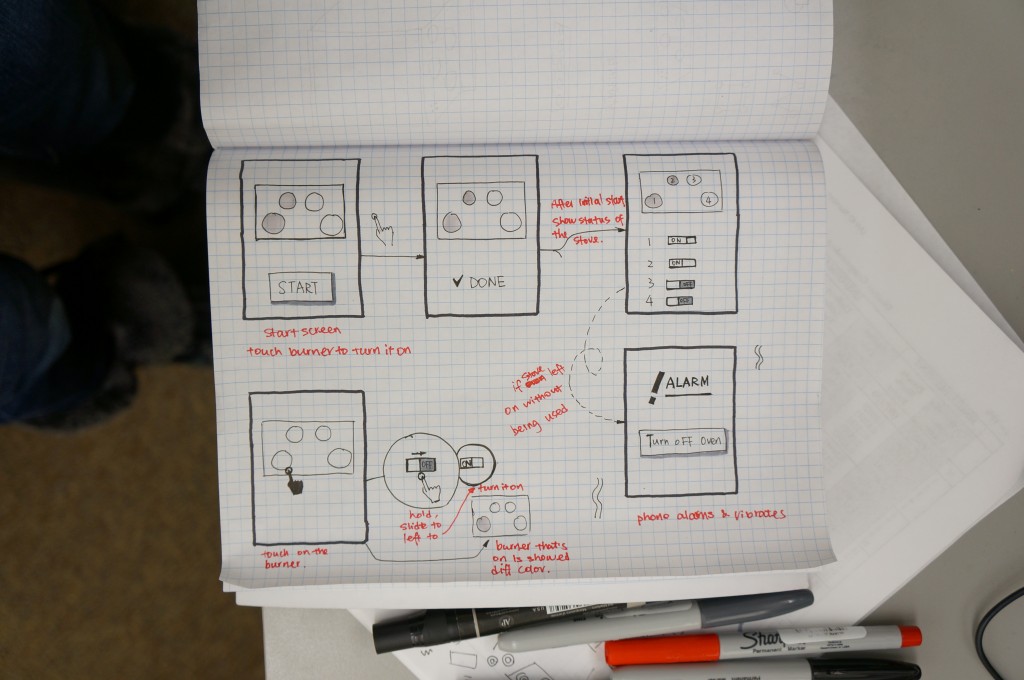 START
start screen
touch burner to turn it on
✓ DONE
After initial start,
show status of
the stove.
2 3
1 4
1 ON
2 ON
3 OFF
4 OFF
if stove left
on without
being used
! ALARM
Turn off oven
phone alarms & vibrates
touch on the
burner.
OFF
hold,
slide to
left to
ON
turn it on
burner that's
on is showed
diff color.
Sharp
Permanent Marker